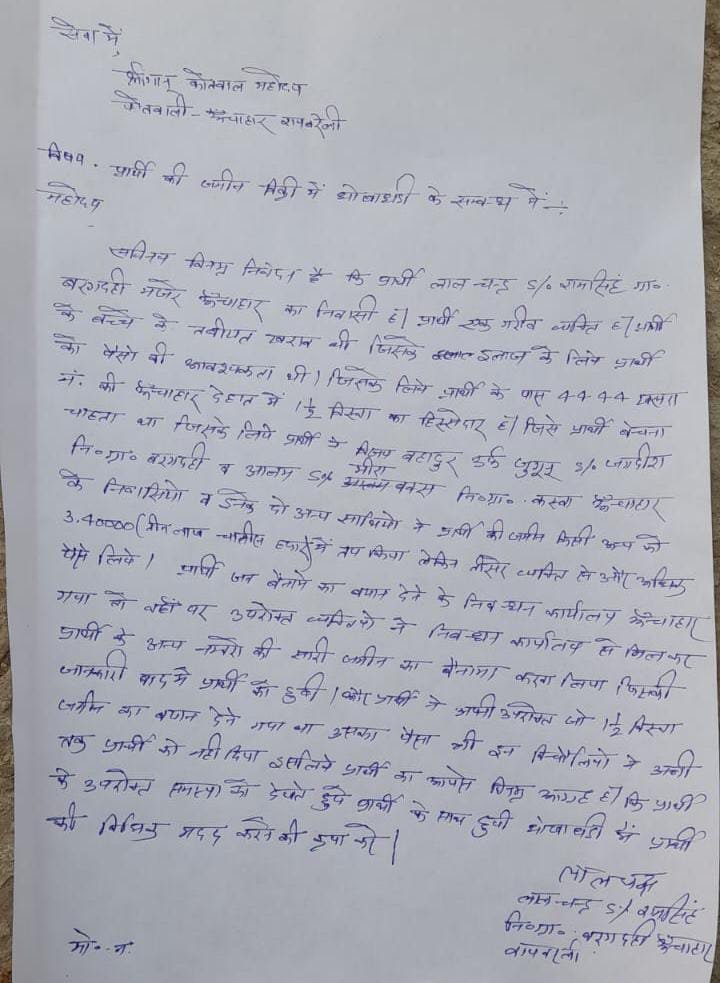 सेवा में,
श्रीमान् कोतवाल महोदय
कोतवाली - ऊँचाहार रायबरेली
विषय - प्रार्थी की जमीन बिक्री में धोखाधडी के सम्बन्ध में :-
महोदय
सविनय विनम्र निवेदन है कि प्रार्थी लाल चन्द्र S/० रामसिंह ग्रा०
बरगदही मजरे ऊँचाहार का निवासी है| प्रार्थी एक गरीब व्यक्ति है| प्रार्थी
के बच्चे के तबीयत खराब थी जिसके इलाज के लिये प्रार्थी
को पैसो की आवश्यकता थी| जिसके लिये प्रार्थी के पास 4444 गाटा
नं. की ऊँचाहार देहात में 1½ बिस्वा का हिस्सेदार है| जिसे प्रार्थी बेचना
चाहता था जिसके लिये प्रार्थी ने विजय बहादुर उर्फ S/० जगदीश
नि०ग्रा० बरगदही व आलम S/० मीरा बक्स नि०ग्रा०. कस्बा ऊँचाहार
के निवासियो व इनके दो अन्य साथियो ने प्रार्थी की जमीन किसी अन्य को
3.40000 (तीन लाख चालीस हजार) में तय किया लेकिन तीसरे व्यक्ति से और अधिक
पैसे लिये| प्रार्थी जब बैनामे का बयान देने के निबन्धन कार्यालय ऊँचाहार
गया तो वहाँ पर उपरोक्त व्यक्तियो ने निबन्धन कार्यालय से मिलकर
प्रार्थी के अन्य नम्बरो की सारी जमीन का बैनामा करा लिया जिसकी
जानकारी बाद मे प्रार्थी को हुयी| और प्रार्थी ने अपनी उपरोक्त जो 1½ बिस्वा
जमीन का बयान देने गया था उसका पैसा भी इन बिचौलियो ने अभी
तक प्रार्थी को नही दिया इसलिये प्रार्थी का आपसे विनम्र आग्रह है| कि प्रार्थी
के उपरोक्त समस्या को देखते हुये प्रार्थी के साथ हुयी धोखाधडी में प्रार्थी
की विधिक मदद करने की कृपा करें|
लालचन्द्र
लाल चन्द्र S/० रामसिंह
नि०ग्रा०. बरगदही ऊँचाहार
रायबरेली
मो०. नं.